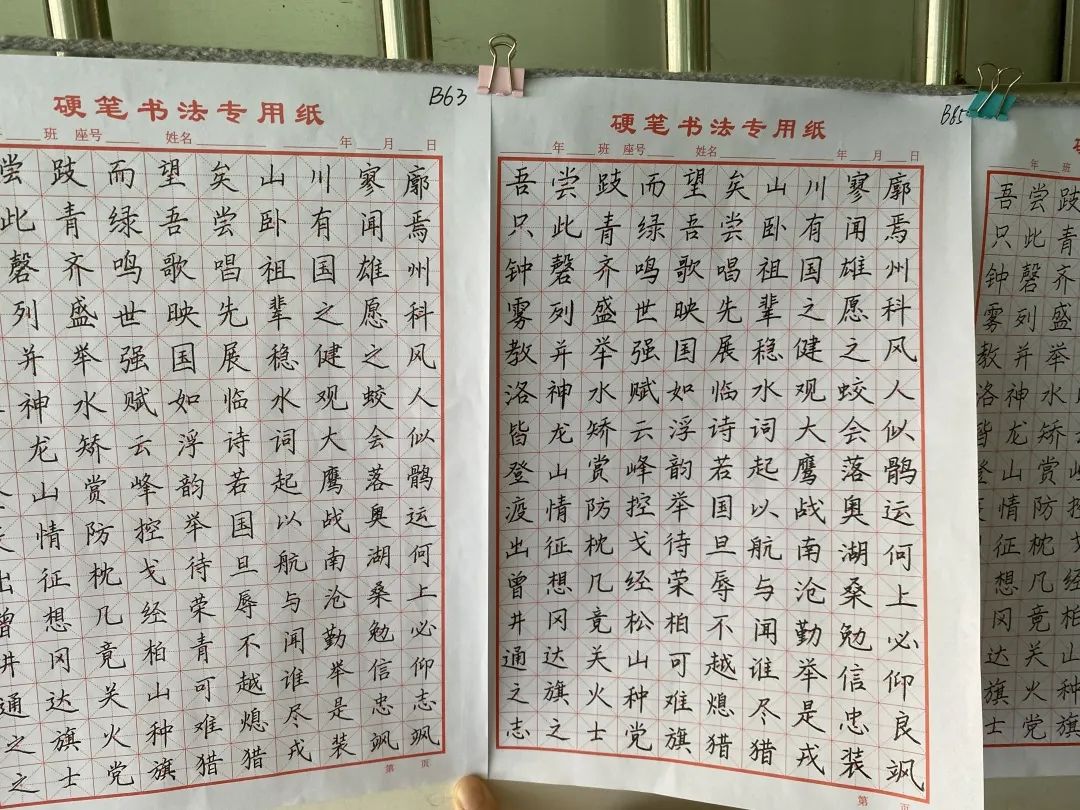 硬笔书法专用纸
B63
班 座号 姓名 年 月 日
尝跂而望矣山川寥廓
此青绿吾尝卧有闻焉
磬齐鸣歌唱祖国雄州
列盛世映先辈之愿科
并举强国展稳健之风
神水赋如临水观蛟人
龙矫云浮诗词大会似
山赏峰韵若起鹰落鹘
情防控举国以战奥运
出征枕戈待旦航南湖何
曾想几经荣辱与沧桑上
井冈竟柏青不闻勤勉必
通达关山可越谁举信仰
之旗火种难熄尽是忠志
之士党旗猎猎戎装飒
第 页
硬笔书法专用纸
B65
年 班 座号 姓名 年 月 日
吾尝跂而望矣山川寥廓
只此青绿吾尝卧有闻焉
钟磬齐鸣歌唱祖国雄州
雾列盛世映先辈之愿科
教并举强国展稳健之风
洛神水赋如临水观蛟人
皆龙矫云浮诗词大会似
登山赏峰韵若起鹰落鹘
疫情防控举国以战奥运
出征枕戈待旦航南湖何
曾想几经荣辱与沧桑上
井冈竟松柏不闻勤勉必
通达关山可越谁举信仰
之旗火种难熄尽是忠良
志之士党旗猎猎戎装飒
第 页
年 班
吾尝跂
只此青
钟磬齐
雾列盛
教并举
洛神水
皆龙矫
登山赏
情防
征枕
想几
冈竟
达关
旗火
士党